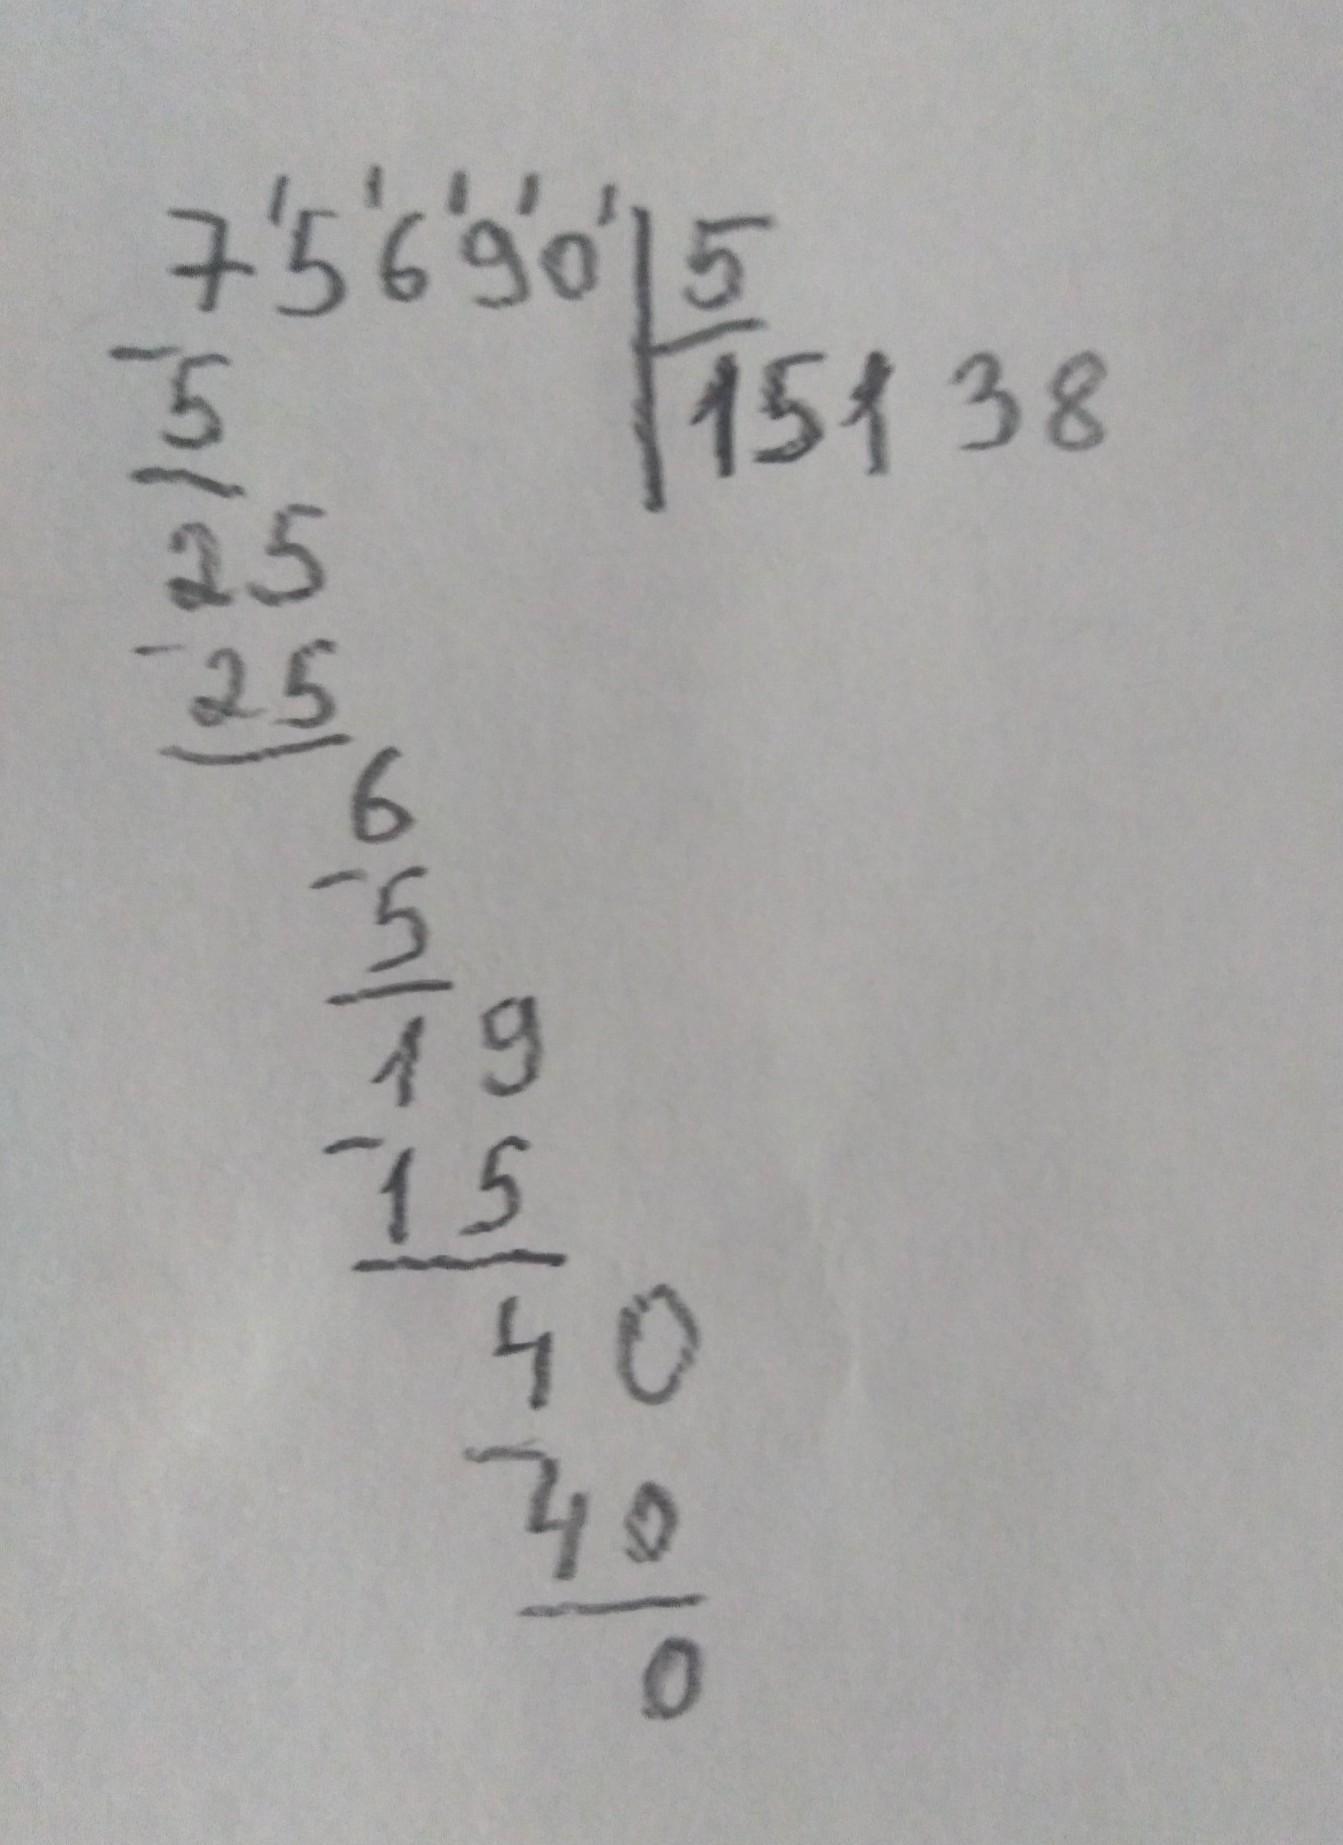 7'5'6'9'0' 5
15138
-5
25
-25
6
-5
19
-15
40
-40
0